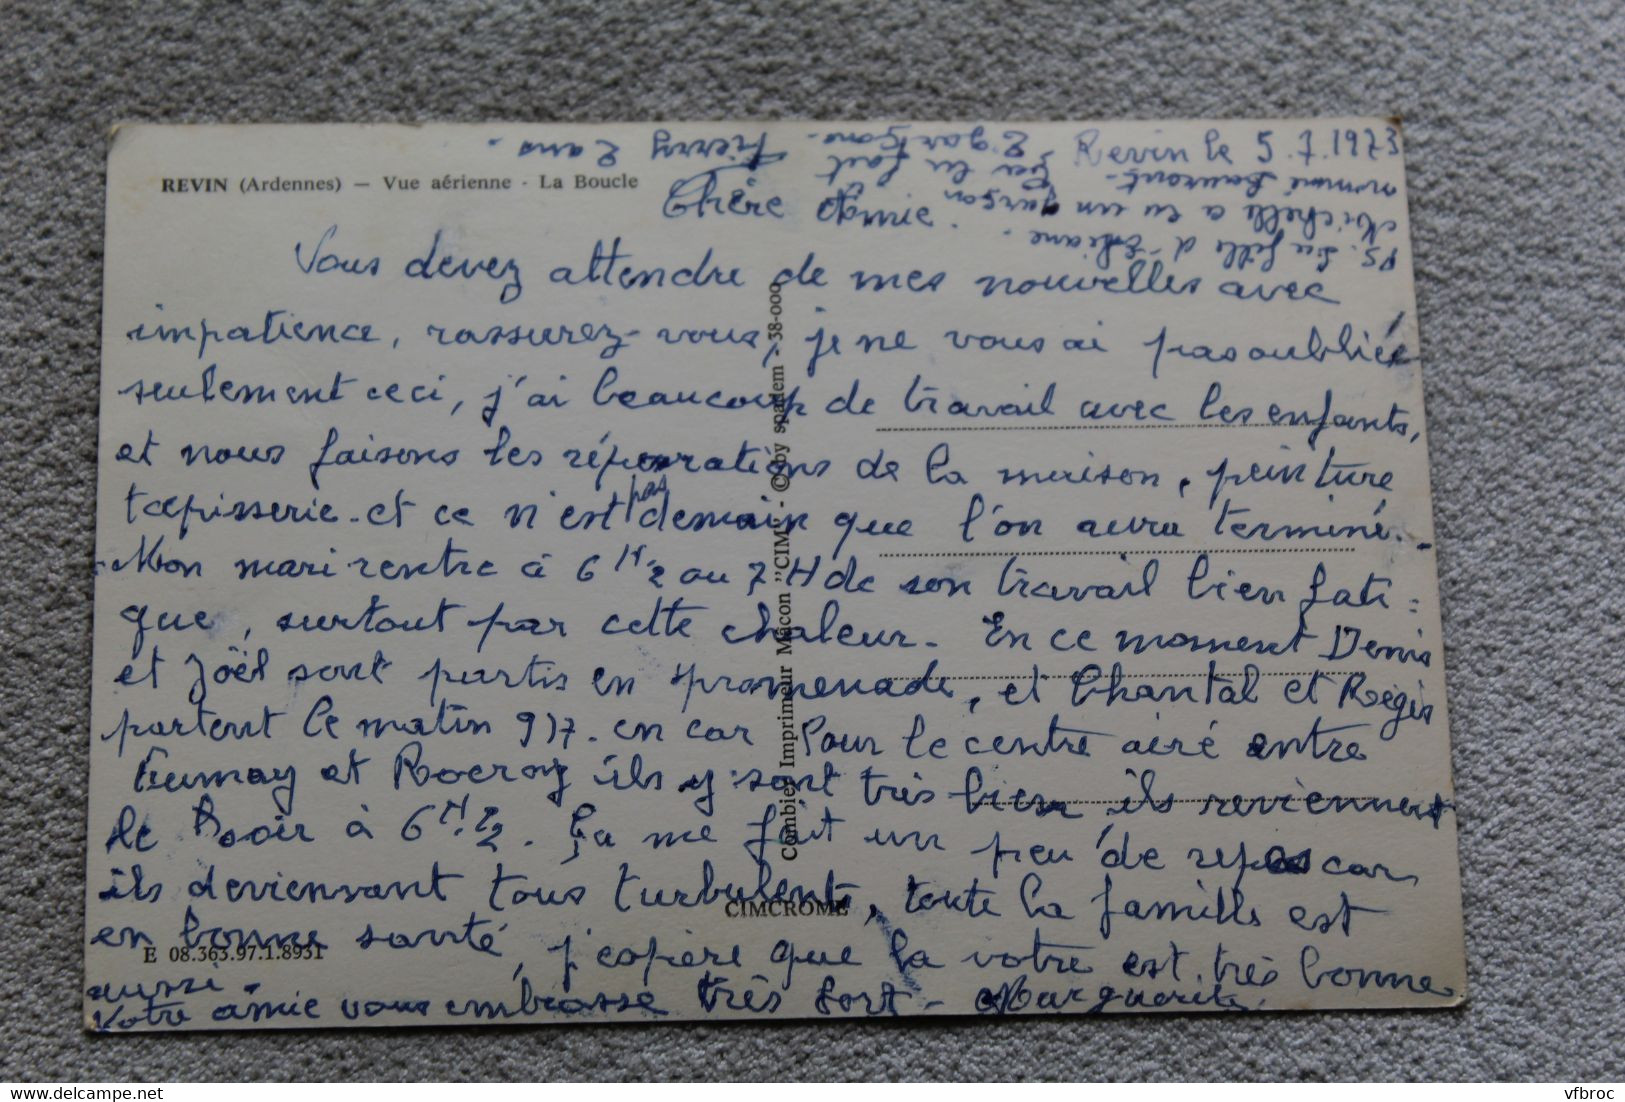 REVIN (Ardennes) — Vue aérienne - La Boucle
Revin le 5.7.1973
Chère Amie.
Vous devez attendre de mes nouvelles avec
impatience, rassurez-vous, je ne vous ai pas oubliée
seulement ceci, j'ai beaucoup de travail avec les enfants,
et nous faisons les réparations de la maison, peinture
tapisserie. et ce n'est pas demain que l'on aura terminé.
Mon mari rentre à 6 H 1/2 ou 7 H de son travail bien fati=
gué, surtout par cette chaleur. En ce moment Denis
et Joël sont partis en promenade, et Chantal et Régis
partent le matin 9)7. en car Pour le centre aéré entre
Fumay et Rocroy ils y sont très bien, ils reviennent
le soir à 6 H. 1/2. Ça me fait un peu de repos car
ils deviennent tous turbulents, toute la famille est
en bonne santé, j'espère que la votre est très bonne
aussi.
Votre amie vous embrasse très fort - Marguerite.
PS. La fille d'Eliane.
Michelle a eu un garçon
nommé Laurent.
ça lui fait
2 garçons.
Thierry 2 ans.
Combier Imprimeur Mâcon "CIM" - © by spadem - 38-000
CIMCROME
E 08.363.97.1.8931
vfbroc